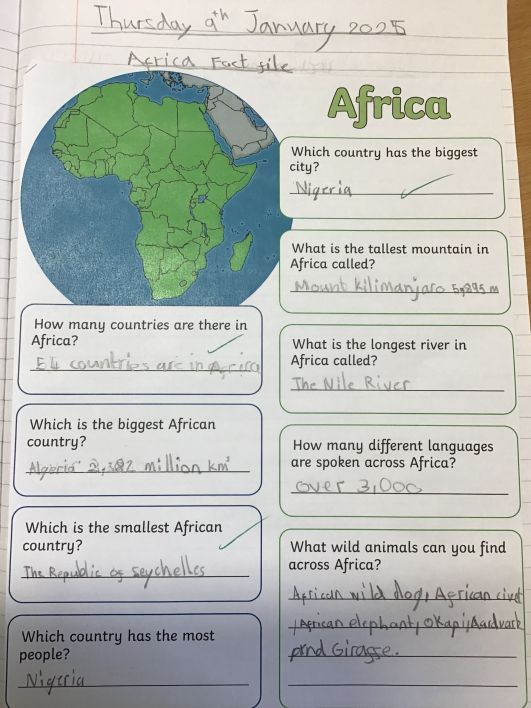 Thursday 9th January 2025
Africa Fact file
Africa
Which country has the biggest
city?
Nigeria
What is the tallest mountain in
Africa called?
Mount kilimanjaro 5,895 m
How many countries are there in
Africa?
54 countries are in Africa
What is the longest river in
Africa called?
The Nile River
Which is the biggest African
country?
Algeria 2,382 million km²
How many different languages
are spoken across Africa?
over 3,000
Which is the smallest African
country?
The Republic of seychelles
What wild animals can you find
across Africa?
African wild dog, African civet
, African elephant, Okapi, Aardvark
and Giraffe.
Which country has the most
people?
Nigeria